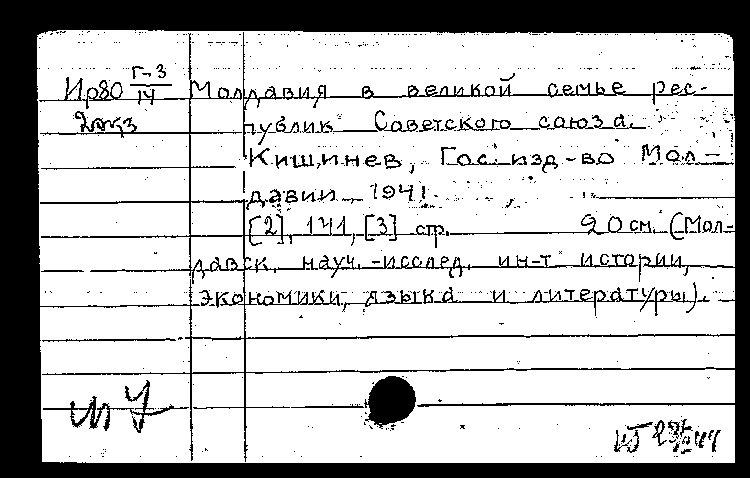 Ир80 Г-3/14 Молдавия в великой семье рес-
2экз публик Советского союза.
Кишинев, Гос. изд-во Мол-
давии, 1941.
[2], 141, [3] стр. 20 см. (Мол-
давск. науч.-исслед. ин-т истории,
экономики, языка и литературы).